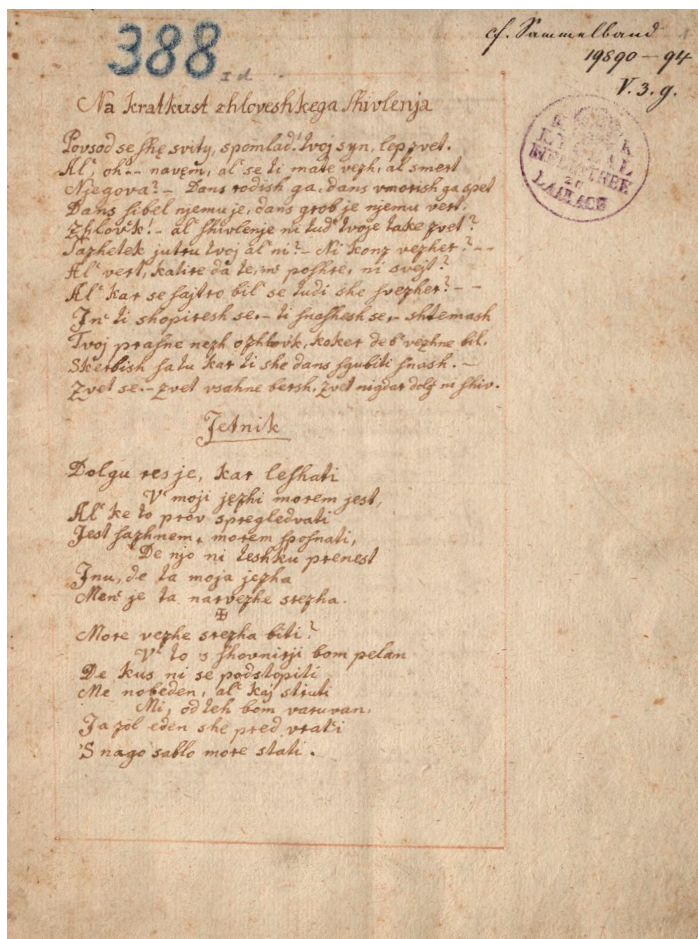 388
I d.
cf. Sammelband
19890-94
V. 3. g.
K K
LYCEAL
BIBLIOTHEK
ZU
LAIBACH
Na kratkust zhloveshkega shivlenja
Povsod se shę svity, spomlad' tvoj syn, lep zvet.
Al', oh -- navęm, al' se ti mate vezh, al' smert
Njegova? - Dans rodish ga, dans vmorish ga spet
Dans sibel njemu je, dans grob je njemu vert.
Zhlov'k! - al' shivlenje ni tud' tvoje take zvet?
Sazhetek jutru tvoj al' ni? - Ni konz vezher? --
Al' vert, katire da te, in' poshre, ni svejt?
Al' kar se sajtro bil se tudi she svezher? --
In' ti shopiresh se, - ti snashesh se, - shtemash
Tvoj prasne nezh o zhlovk, koker de b' vezhne bil.
Skerbish sa tu kar ti she dans sgubiti snash. -
Zvet se. - zvet vsahne bersh, zvet nigdar dolg ni shiv.
Jetnik
Dolgu res je, kar leshati
V' moji jęzhi morem jest,
Al' ke to prov spregledvati
Jest sazhnem, morem sposnati,
De njo ni teshku prenest
Inu, de ta moja jezha
Men' je ta narvezhe srezha.
More vezhe srezha biti?
V' to s shovnirji bom pelan
De kus ni se podstopiti
Me nobeden, al' kaj striti
Mi, od teh bom varuvan,
Ja zol eden she pred vrati
'S nago sablo more stati.